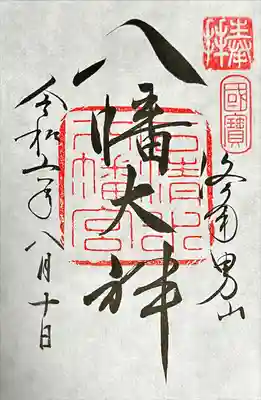 奉拝
國寶
洛南男山
八幡大神
石清水
八幡宮
令和五年八月十日